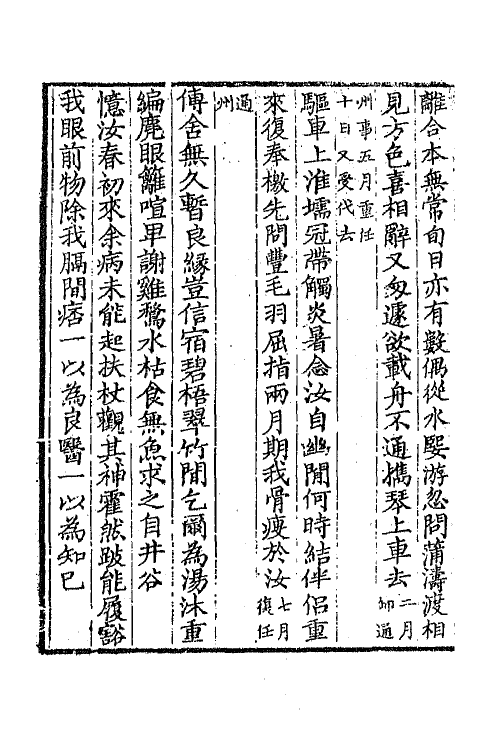 離合本無常旬日亦有數偶從水墅游忽問蒲濤渡相
見方色喜相辭又匆遽欲載舟不通攜琴上車去二月卸通
州事五月重任十日又受代去
驅車上淮壖冠帶觸炎暑念汝自幽閒何時結伴侶重
來復奉檄先問豐毛羽屈指兩月期我骨瘦於汝七月復任
通州
傳舍無久暫良緣豈信宿碧梧翠竹閒乞爾為湯沐重
編麂眼籬喧卑謝雞鶩水枯食無魚求之自井谷
憶汝春初來余病未能起扶杖觀其神霍然跛能履豁
我眼前物除我膈間痞一以為良醫一以為知已